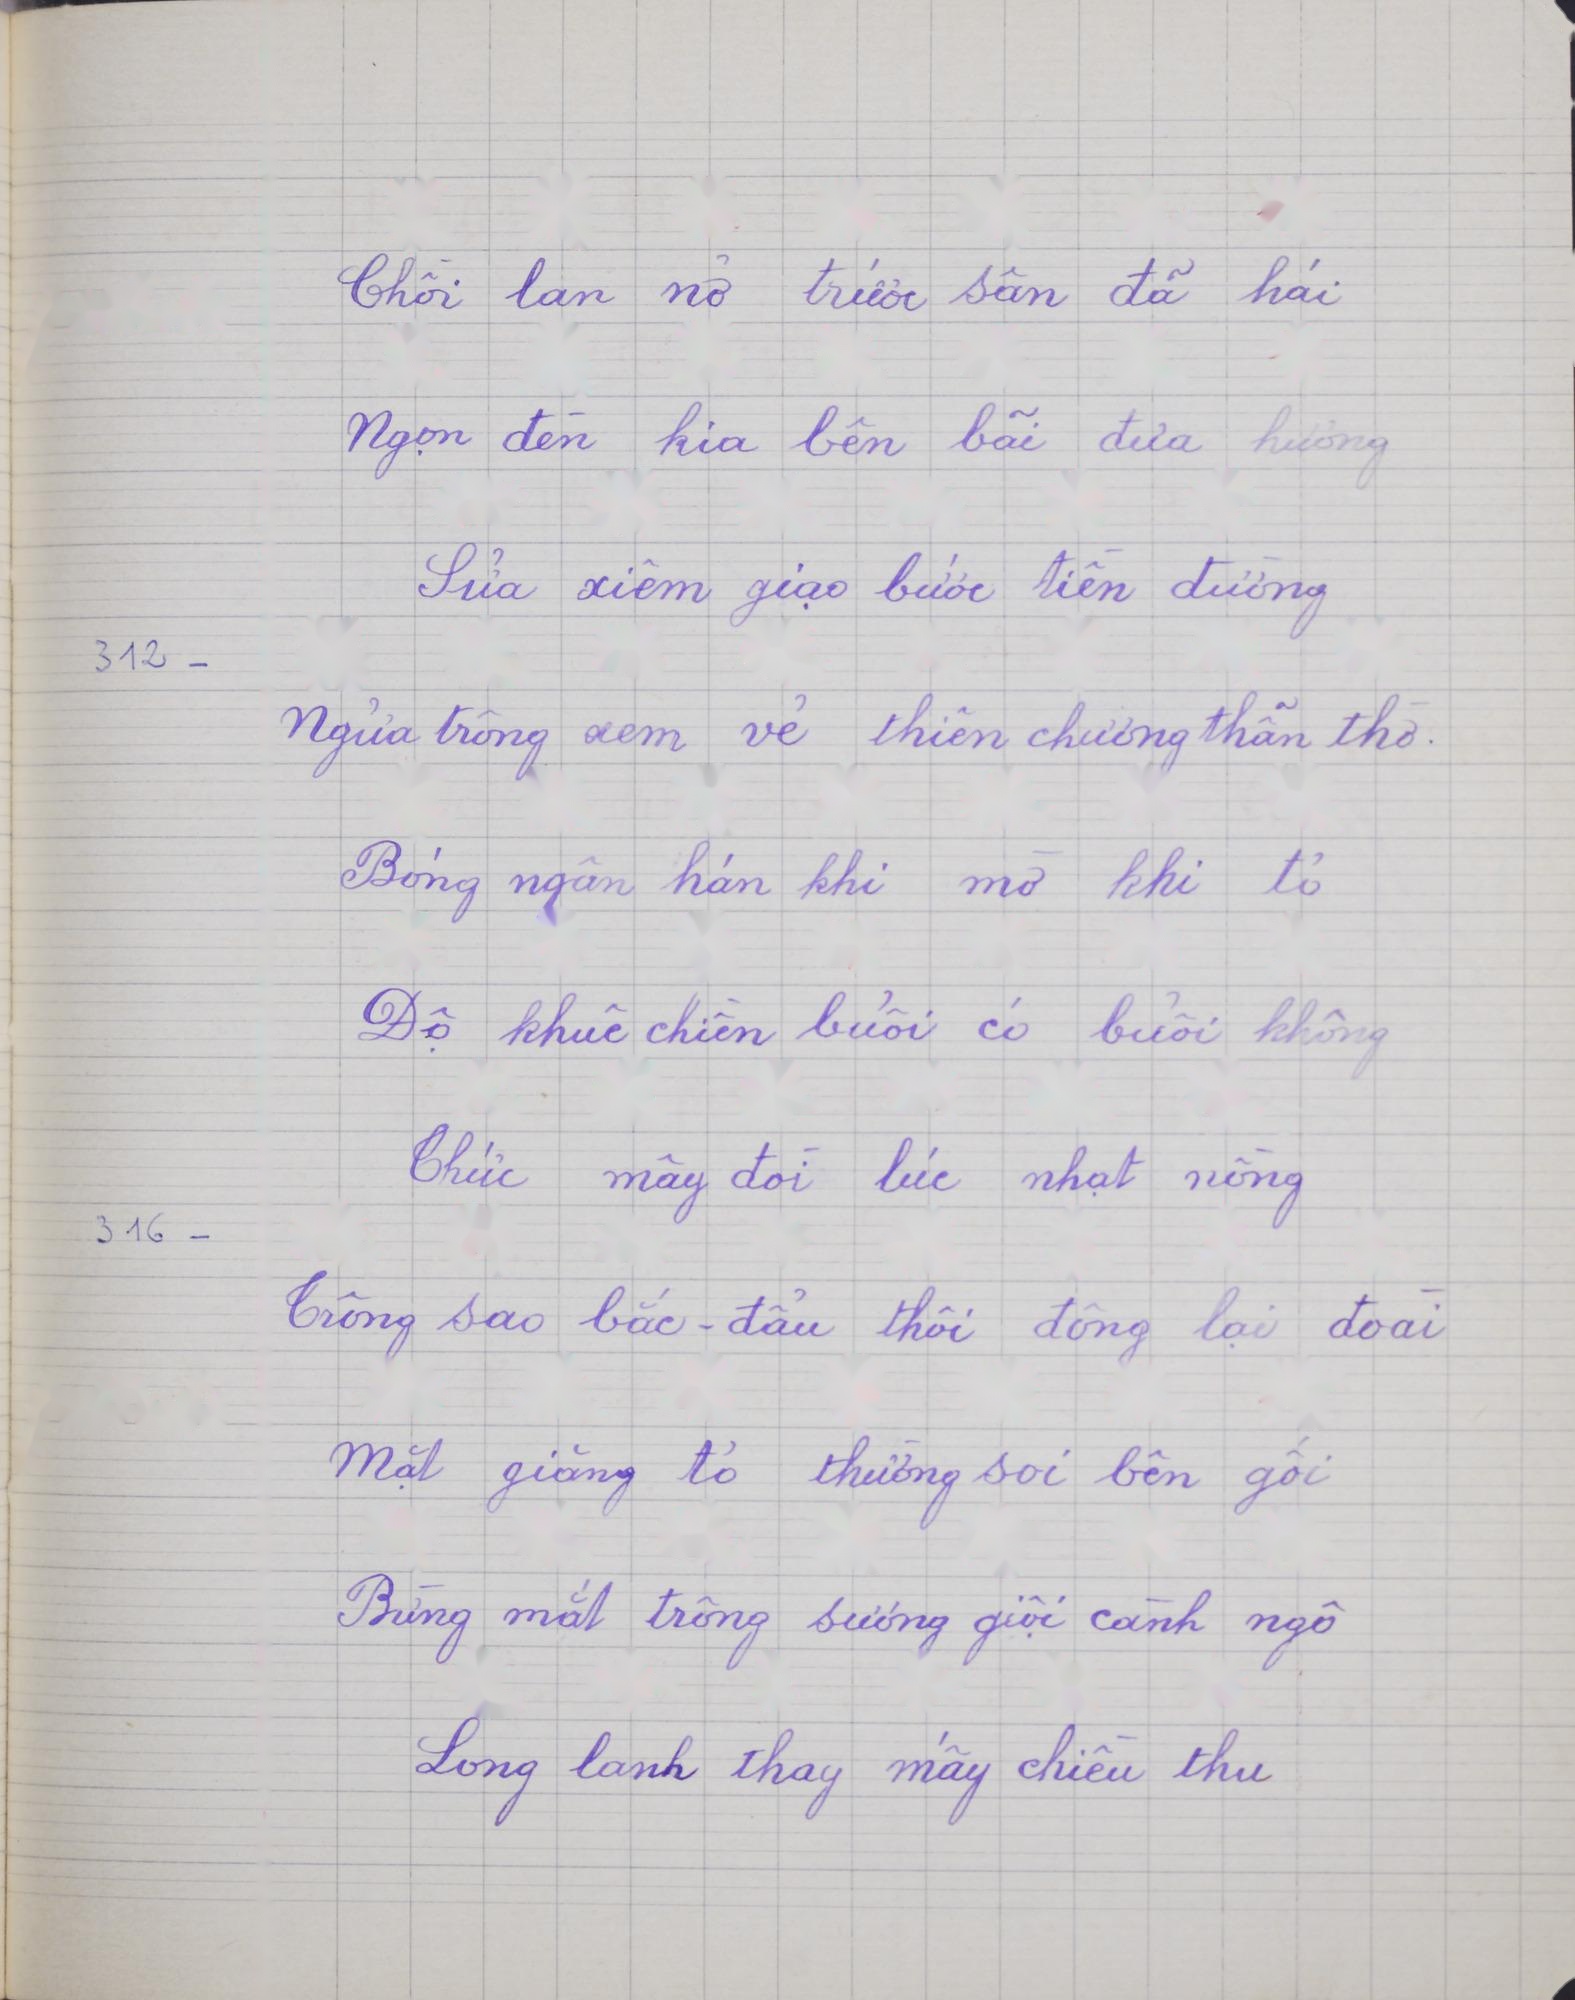 Chồi lan nở trước sân đã hái
Ngọn đèn kia bên bãi đưa hương
Sửa xiêm giạo bước tiền đường
312 -
Ngửa trông xem vẻ thiên chương thẫn thờ.
Bóng ngân hán khi mờ khi tỏ
Độ khuê chiền buổi có buổi không
Thức mây đòi lúc nhạt nồng
316 -
Trông sao bắc - đẩu thôi đông lại đoài
Mặt giăng tỏ thường soi bên gối
Bừng mắt trông sương giội cành ngô
Long lanh thay mấy chiều thu